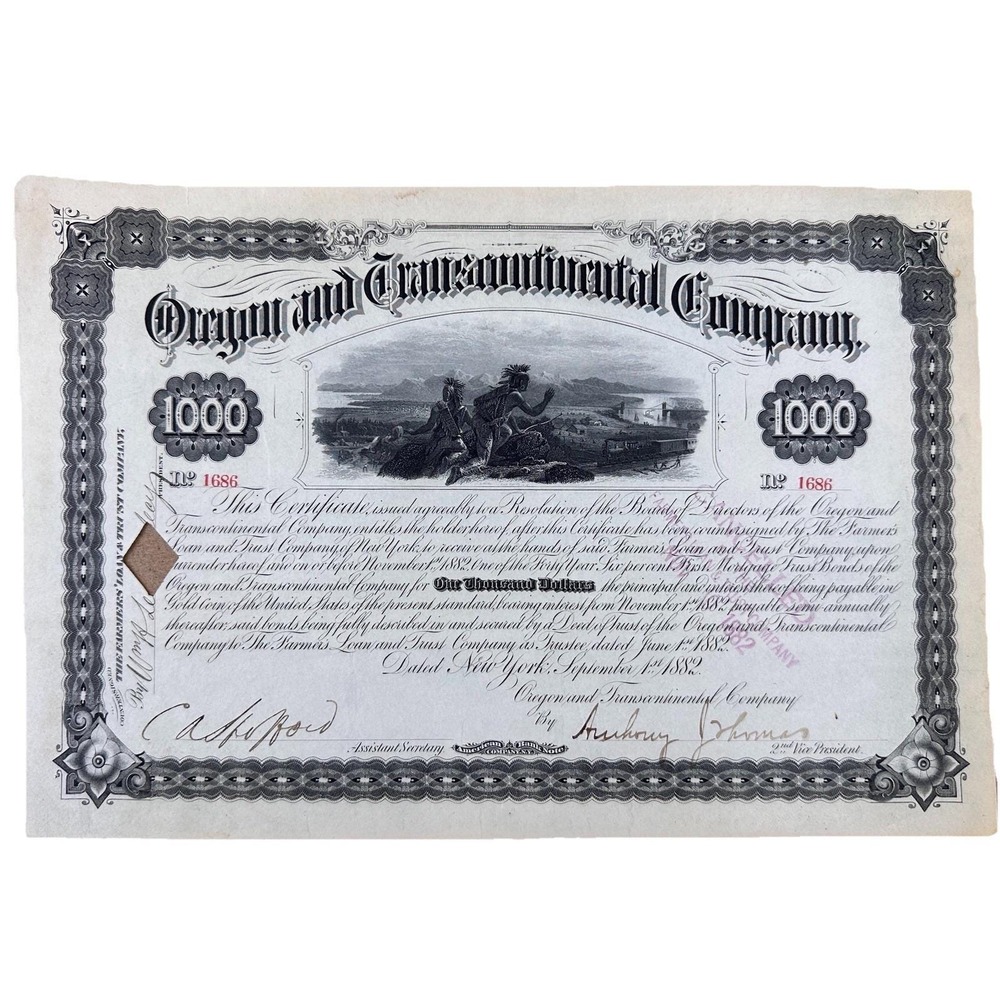 Oregon and Transcontinental Company.
1000
1000
No 1686
No 1686
This Certificate, issued agreeably to a Resolution of the Board of Directors of the Oregon and
Transcontinental Company entitles the holder hereof, after this Certificate has been countersigned by The Farmers'
Loan and Trust Company, of New York, to receive at the hands of said Farmers' Loan and Trust Company, upon
surrender hereof and on or before November 1st 1882, One of the Forty Year Six per cent. First Mortgage Trust Bonds of the
Oregon and Transcontinental Company for One Thousand Dollars the principal and interest thereof being payable in
Gold Coin of the United States of the present standard, bearing interest from November 1st 1882, payable semi-annually
thereafter, said bonds being fully described in and secured by a Deed of Trust of the Oregon and Transcontinental
Company to The Farmers' Loan and Trust Company as Trustee, dated June 1st 1882.
Dated New York, September 1st 1882.
Oregon and Transcontinental Company
By Anthony J Thomas
2nd Vice President.
C A Spofford
Assistant Secretary
American Bank Note
COMPANY N.Y.
COUNTERSIGNED
THE FARMERS' LOAN & TRUST COMPANY.
By
PRESIDENT.
COMPANY
1882